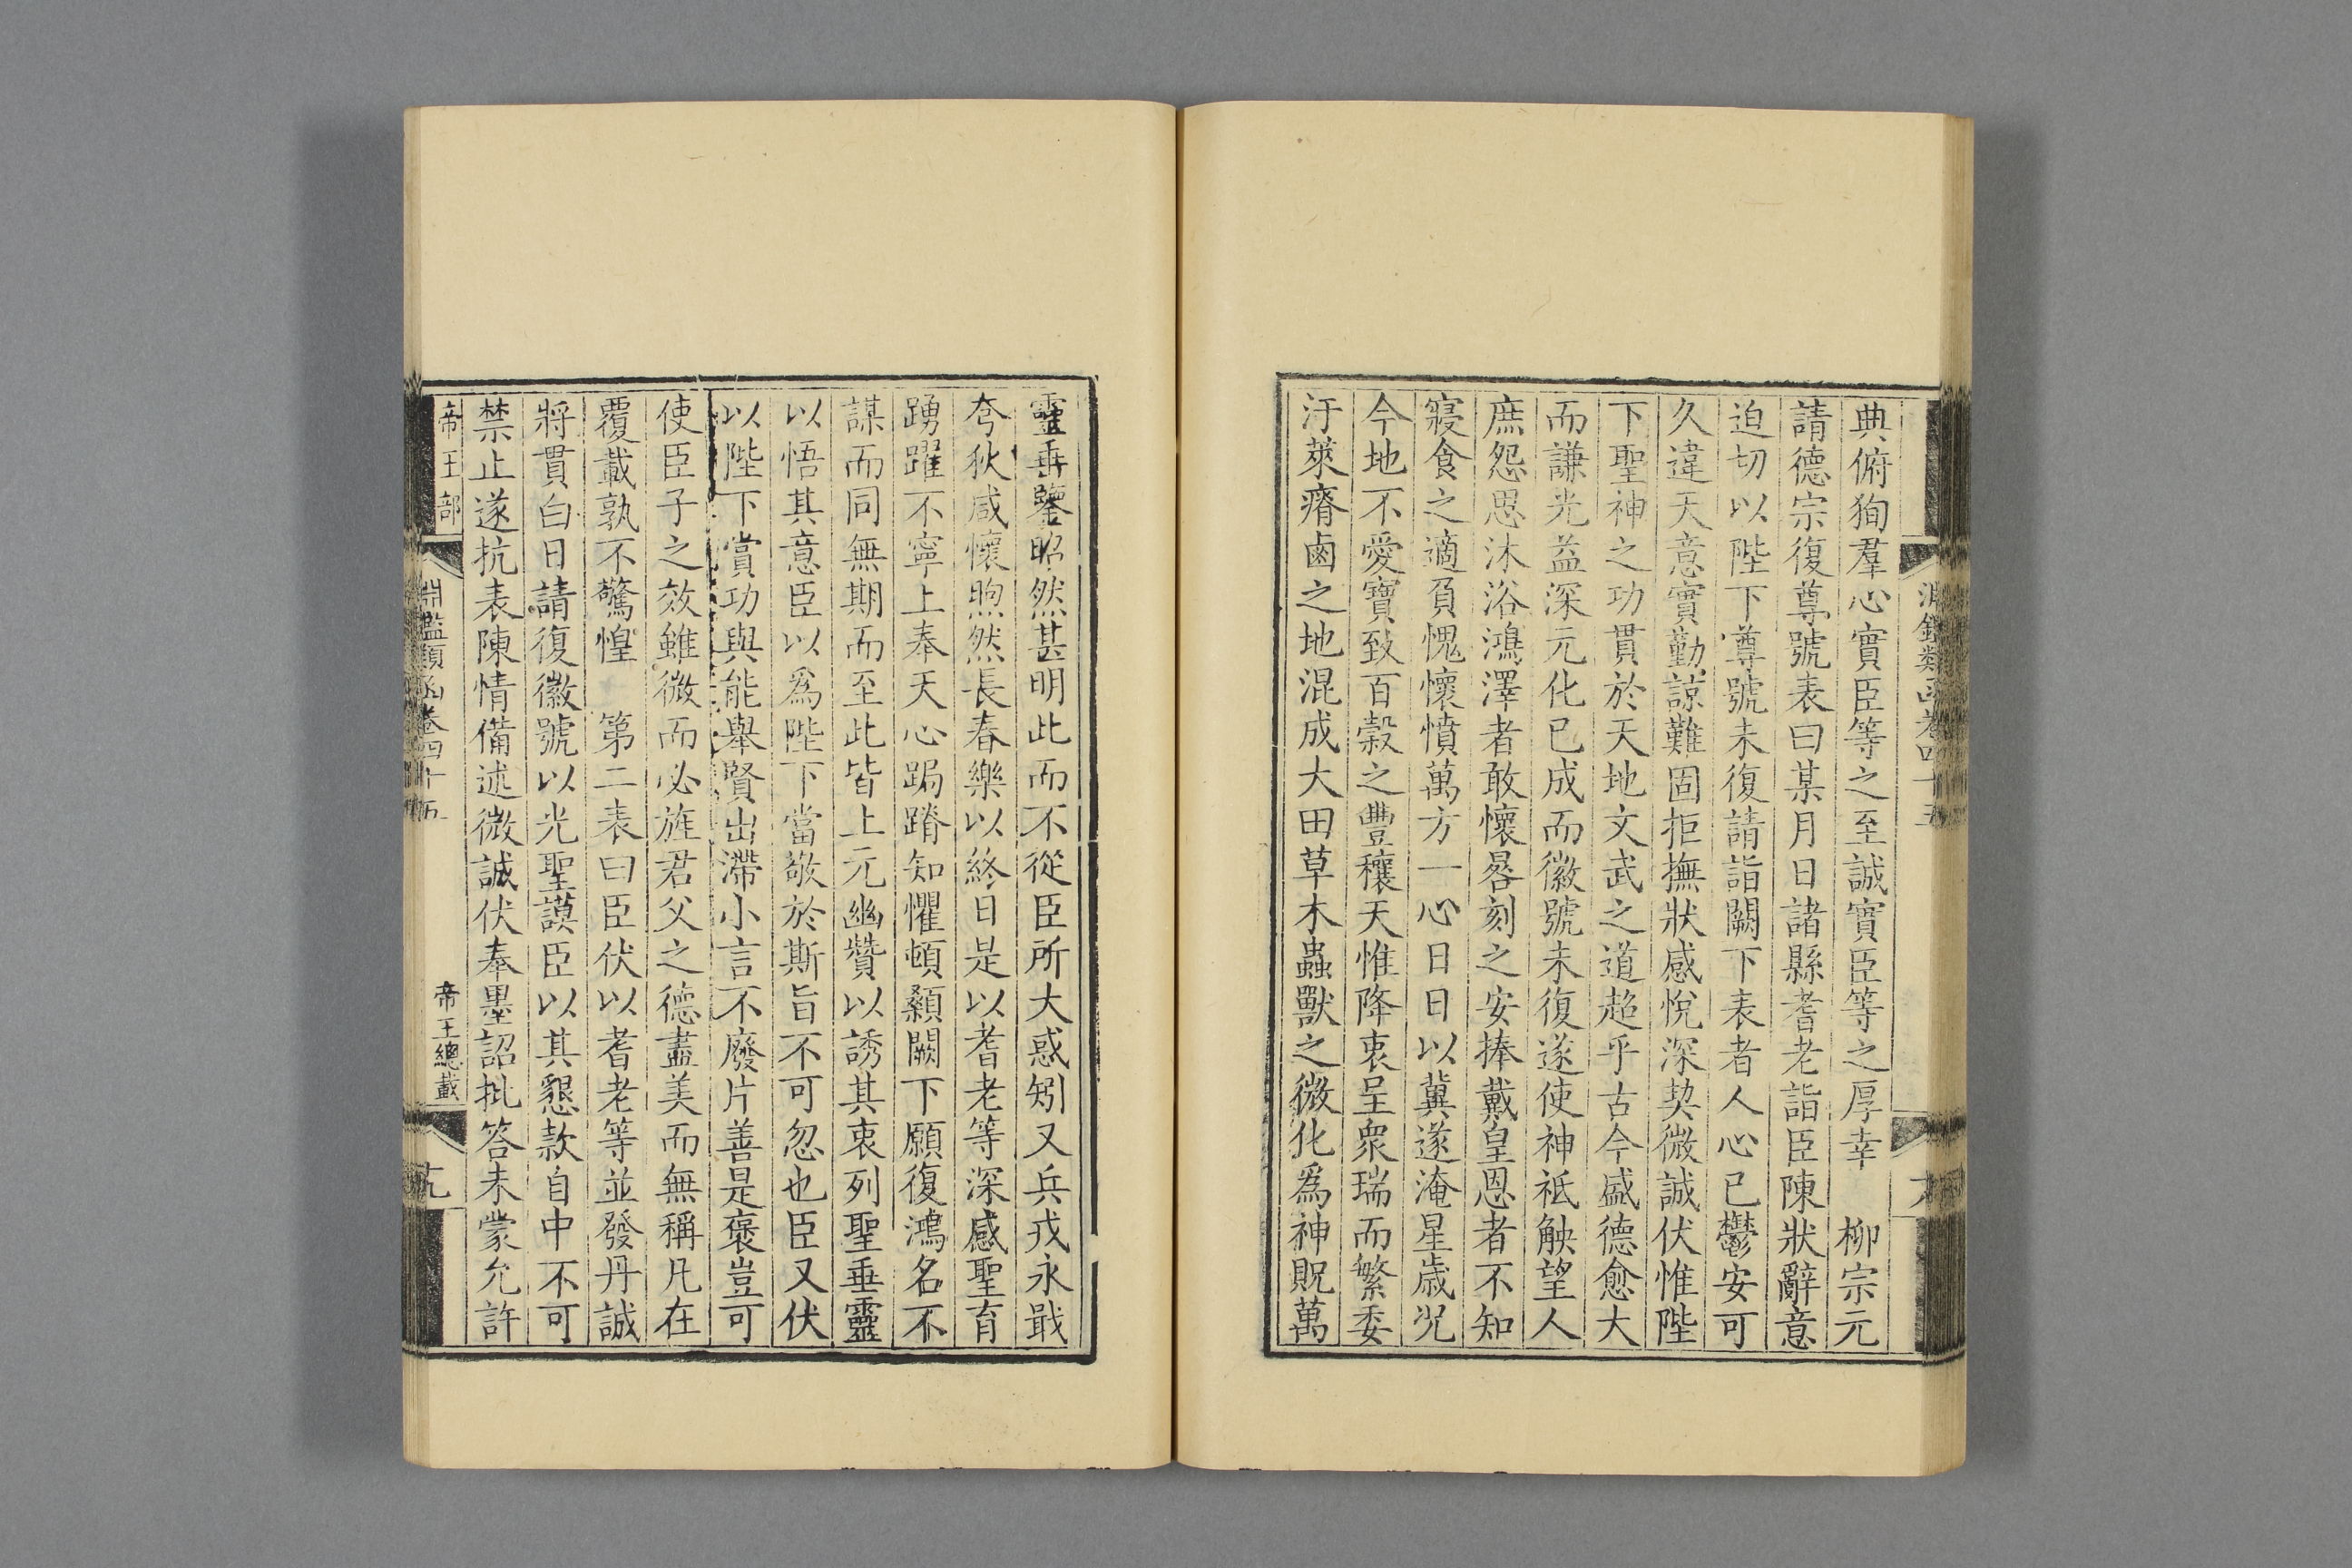 典俯狥羣心實臣等之至誠實臣等之厚幸　柳宗元
請德宗復尊號表曰某月日諸縣耆老詣臣陳狀辭意
迫切以陛下尊號未復請詣闕下表者人心已鬱安可
久違天意實勤諒難固拒撫狀感悅深契微誠伏惟陛
下聖神之功貫於天地文武之道超乎古今盛德愈大
而謙光益深元化已成而徽號未復遂使神祗觖望人
庶怨思沐浴鴻澤者敢懷晷刻之安捧戴皇恩者不知
寢食之適負愧懷憤萬方一心日日以冀遂淹星歲况
今地不愛寶致百穀之豐穰天惟降衷呈衆瑞而繁委
汙萊瘠鹵之地混成大田草木蟲獸之微化爲神貺萬
靈垂鑒昭然甚明此而不從臣所大惑矧又兵戎永戢
夸狄咸懷煦然長春樂以終日是以耆老等深感聖育
踴躍不寧上奉天心跼蹐知懼頓顙闕下願復鴻名不
謀而同無期而至此皆上元幽贊以誘其衷列聖垂靈
以悟其意臣以爲陛下當敬於斯旨不可忽也臣又伏
以陛下賞功與能舉賢出滯小言不廢片善是褒豈可
使臣子之效雖微而必旌君父之德盡美而無稱凡在
覆載孰不驚惶　第二表曰臣伏以耆老等並發丹誠
將貫白日請復徽號以光聖謨臣以其懇款自中不可
禁止遂抗表陳情備述微誠伏奉墨詔批答未蒙允許
帝王部　淵鑑類函卷四十五　帝王總載